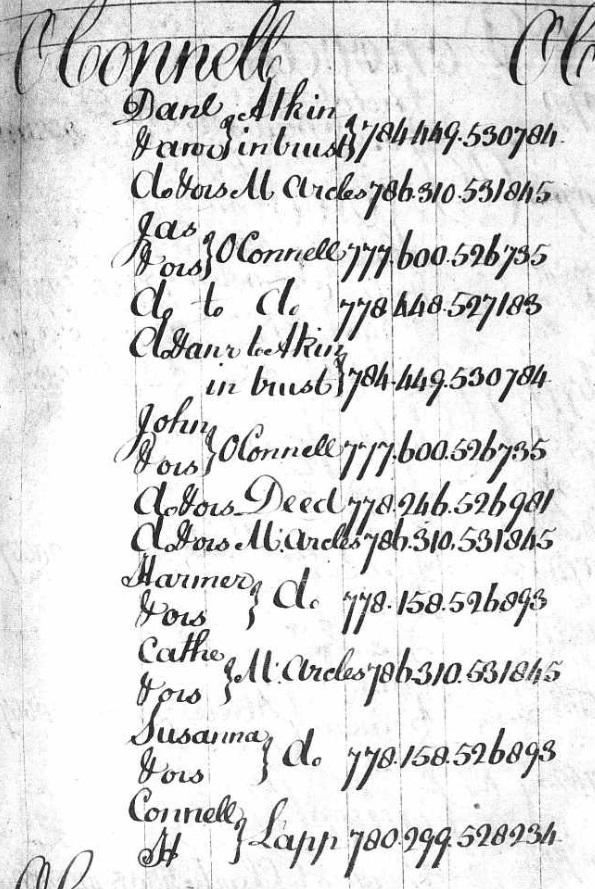 O'Connell
Danl & anor } Atkin in trust } 784.449.530784
Do & ors M. Arcles 786.310.531845
Jas & ors } O'Connell 777.600.526735
Do to Do 778.448.527183
Do & anr to Atkin
in trust } 784.449.530784
John & ors } O'Connell 777.600.526735
Do & ors Deed 778.246.526981
Do & ors M. Arcles 786.310.531845
Harmer & ors } Do 778.158.526893
Cathe & ors } M. Arcles 786.310.531845
Susanna & ors } Do 778.158.526893
Connell H } Lapp 780.299.528234